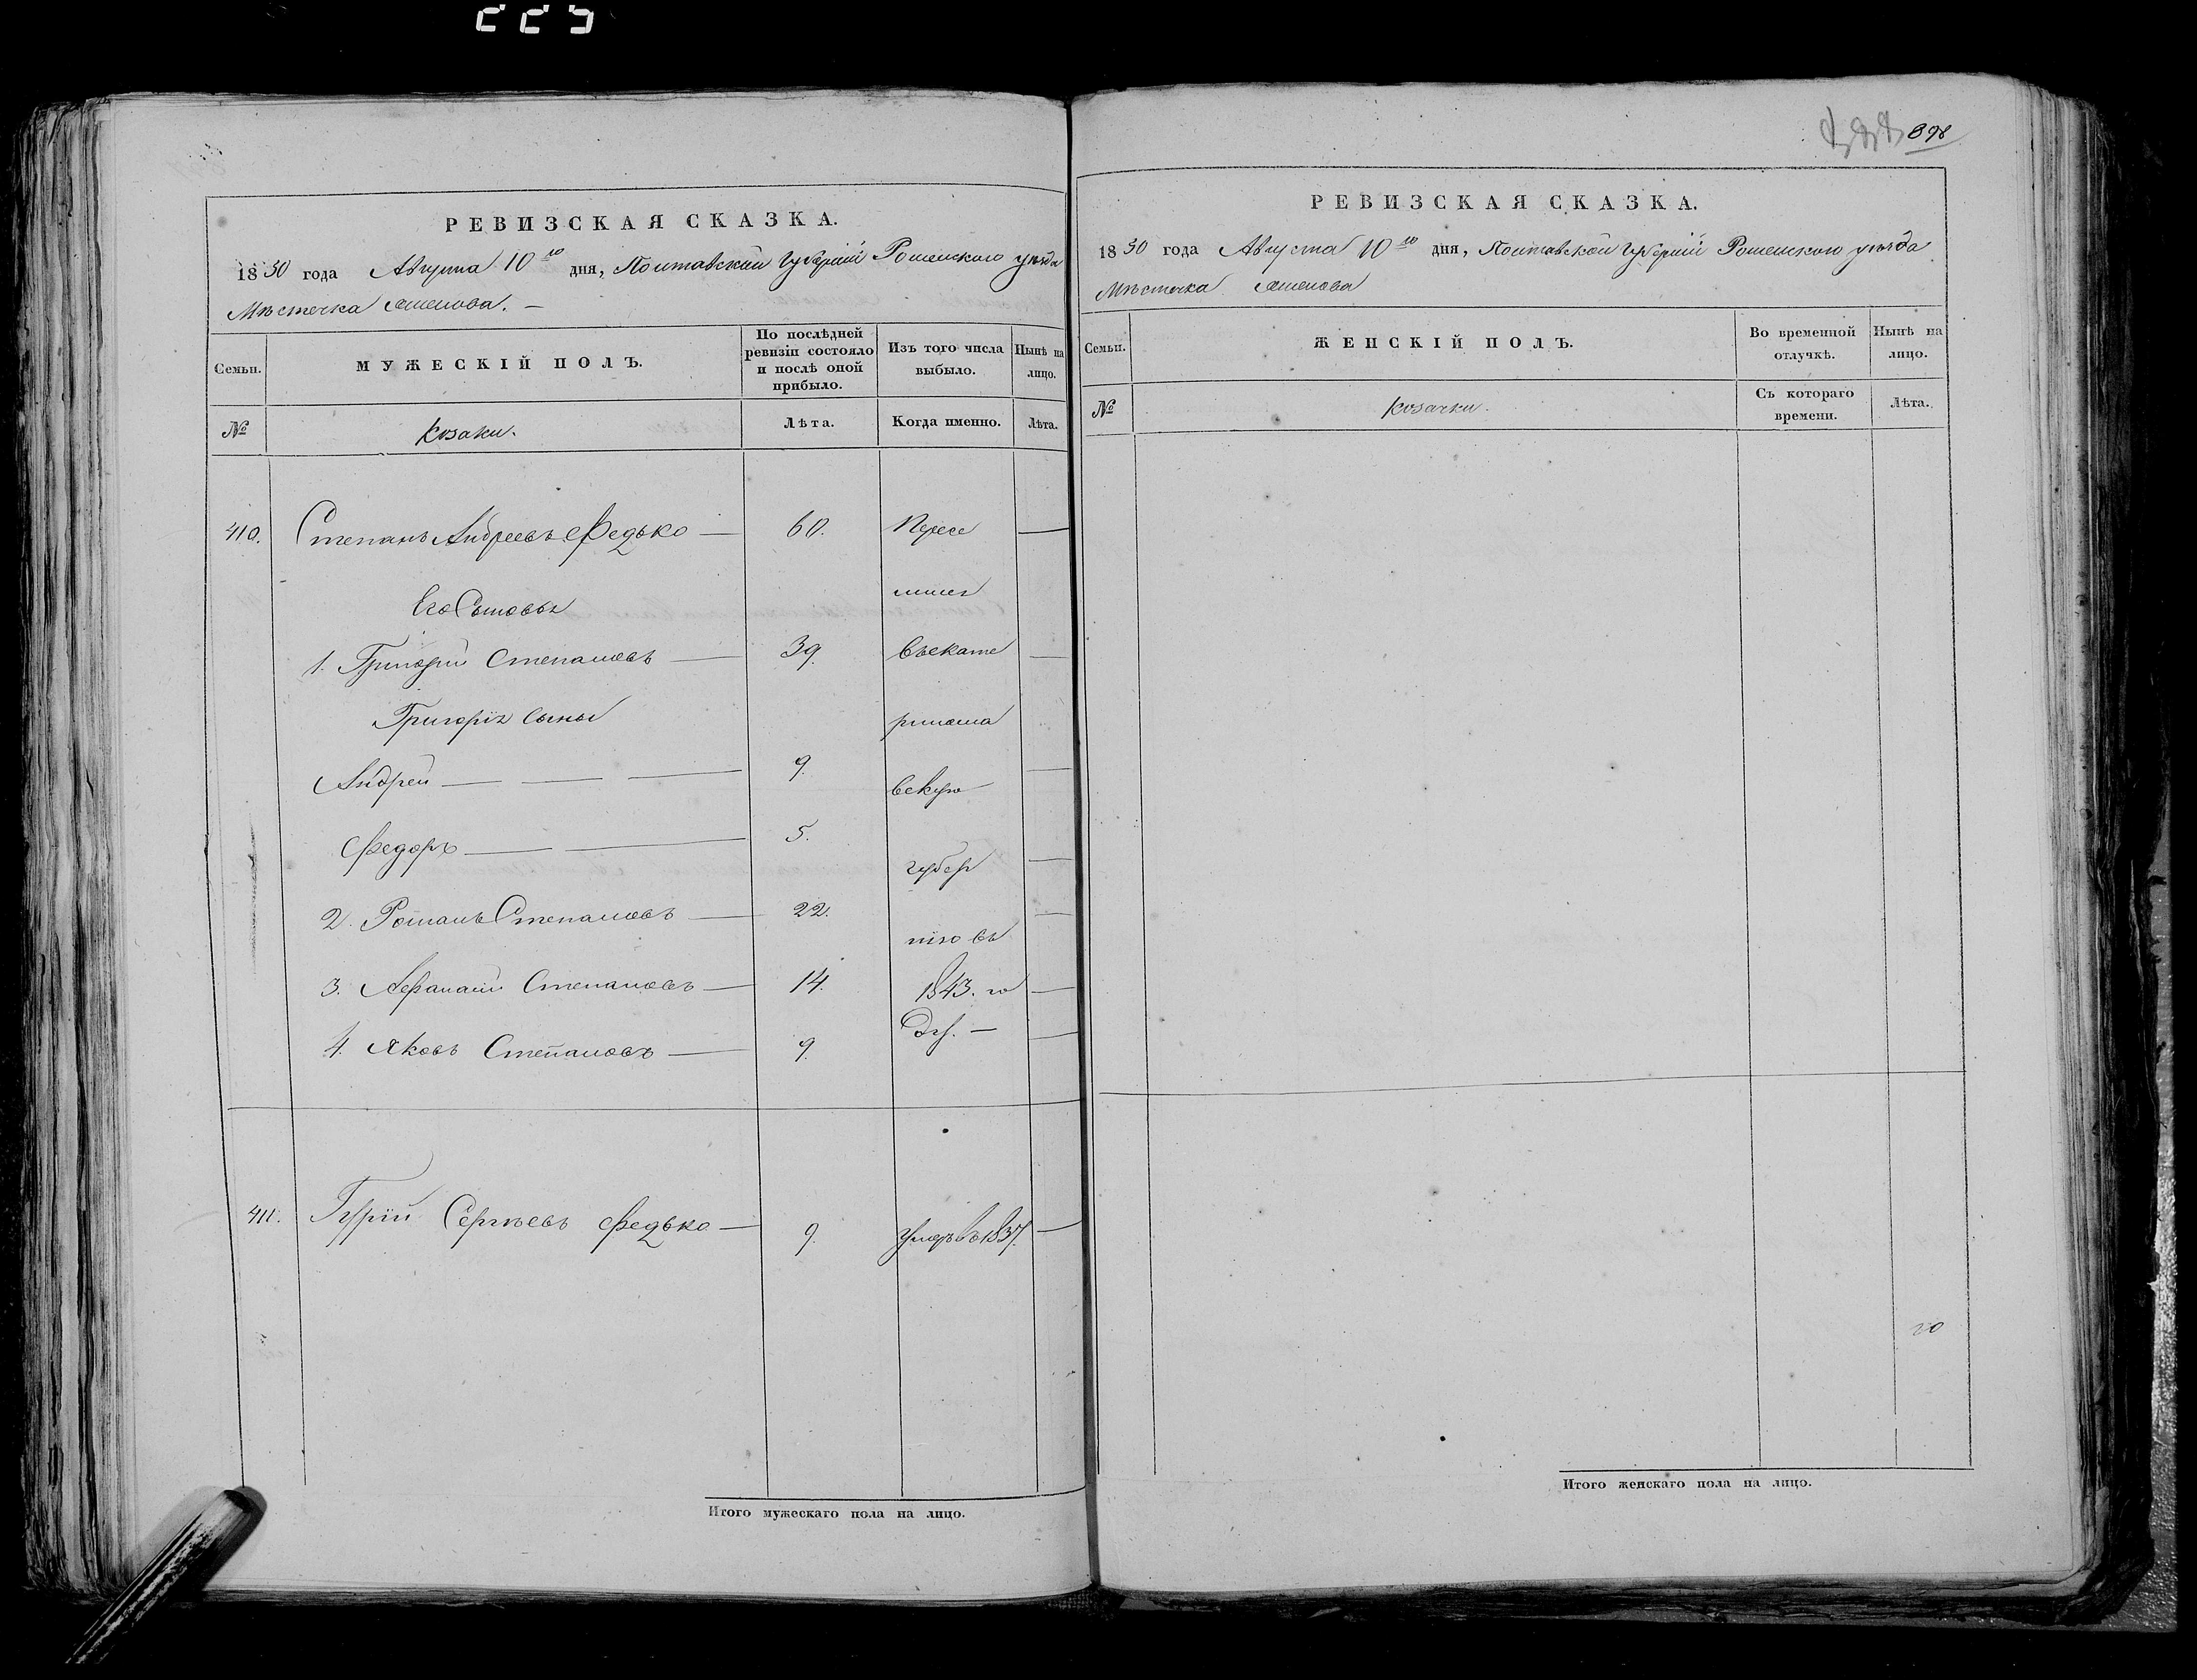 898
РЕВИЗСКАЯ СКАЗКА.
1850 года Августа 10го дня, Полтавской Губерніи Роменскаго уѣзда
Мѣстечка Смелова. —
Семьи.
МУЖЕСКІЙ ПОЛЪ.
По послѣдней ревизіи состояло и послѣ оной прибыло.
Изъ того числа выбыло.
Нынѣ на лицо.
№
Козаки.
Лѣта.
Когда именно.
Лѣта.
410. Степанъ Андреевъ Федько — 60. Пересе —
Его Сыновья лился
1. Григорій Степановъ — 39. въекате —
Григорія сыны рино сла
Андрей — — — 9. вскую —
Федоръ — — 5. губер —
2. Романъ Степановъ — 22. нію въ —
3. Афанасій Степановъ — 14. 1843. го —
4. Яковъ Степановъ — 9. ду. — —
411. Гурій Сергѣевъ Федько — 9. Умеръ въ 1837. —
Итого мужескаго пола на лицо.
РЕВИЗСКАЯ СКАЗКА.
1850 года Августа 10го дня, Полтавской Губерніи Роменскаго уѣзда
Мѣстечка Смелова
Семьи.
ЖЕНСКІЙ ПОЛЪ.
Во временной отлучкѣ.
Нынѣ на лицо.
№
Козачки.
Съ котораго времени.
Лѣта.
Итого женскаго пола на лицо.